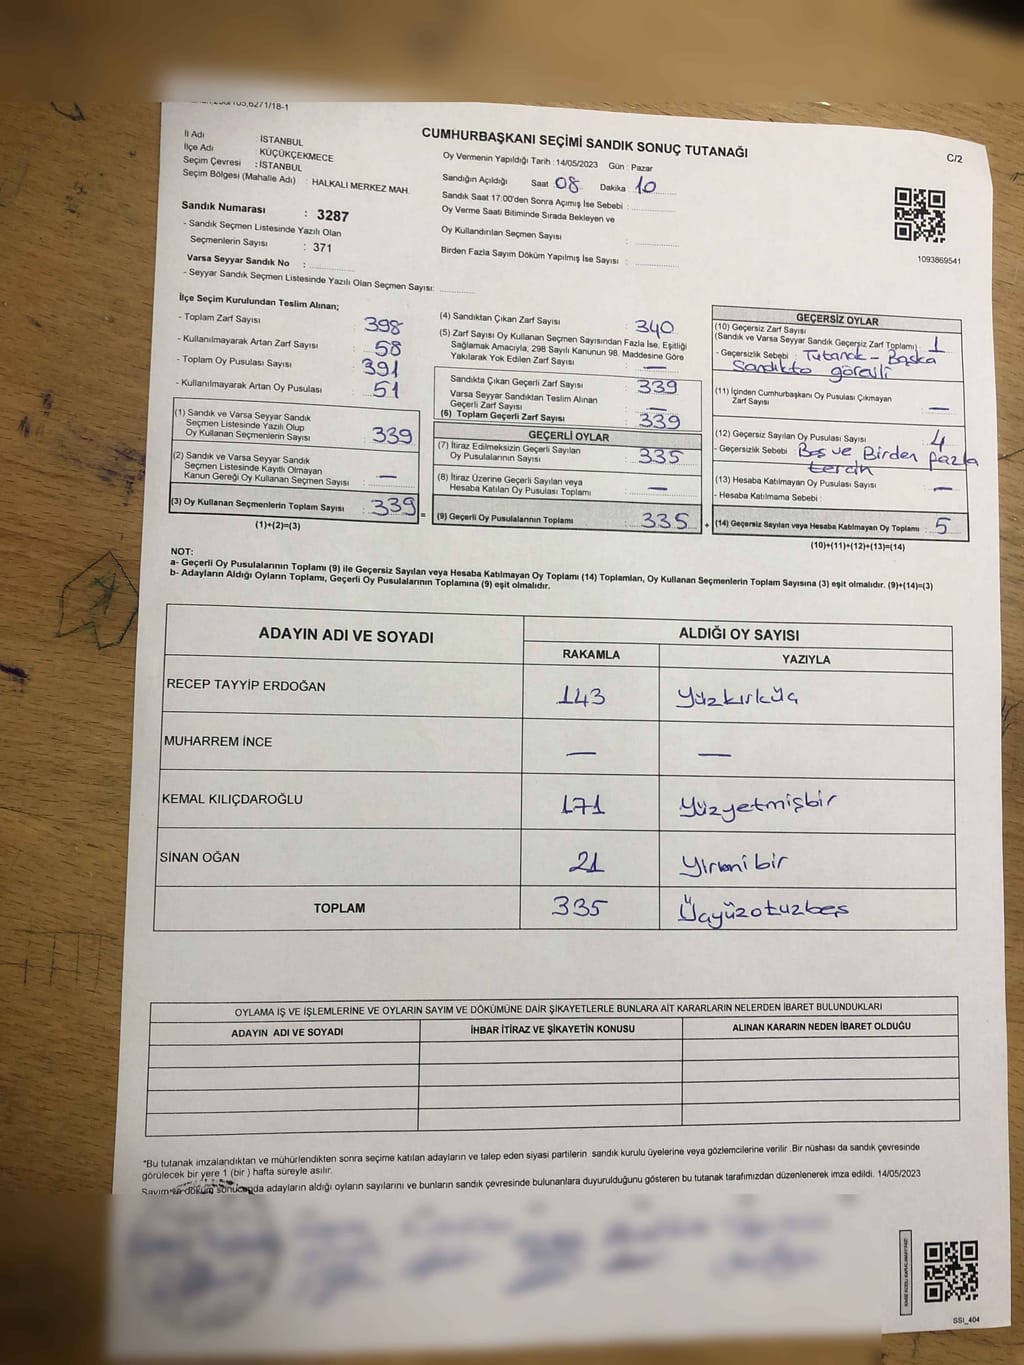 CUMHURBAŞKANI SEÇİMİ SANDIK SONUÇ TUTANAĞI
C/2
İl Adı : İSTANBUL
İlçe Adı : KÜÇÜKÇEKMECE
Seçim Çevresi : İSTANBUL
Seçim Bölgesi (Mahalle Adı) : HALKALI MERKEZ MAH.
Sandık Numarası : 3287
- Sandık Seçmen Listesinde Yazılı Olan
Seçmenlerin Sayısı : 371
Varsa Seyyar Sandık No :
- Seyyar Sandık Seçmen Listesinde Yazılı Olan Seçmen Sayısı:
Oy Vermenin Yapıldığı Tarih : 14/05/2023 Gün : Pazar
Sandığın Açıldığı Saat 08 Dakika 10
Sandık Saat 17:00'den Sonra Açımış İse Sebebi :
Oy Verme Saati Bitiminde Sırada Bekleyen ve
Oy Kullandırılan Seçmen Sayısı :
Birden Fazla Sayım Döküm Yapılmış İse Sayısı :
1093869541
İlçe Seçim Kurulundan Teslim Alınan;
- Toplam Zarf Sayısı 398
- Kullanılmayarak Artan Zarf Sayısı 58
- Toplam Oy Pusulası Sayısı 391
- Kullanılmayarak Artan Oy Pusulası 51
(1) Sandık ve Varsa Seyyar Sandık
Seçmen Listesinde Yazılı Olup
Oy Kullanan Seçmenlerin Sayısı 339
(2) Sandık ve Varsa Seyyar Sandık
Seçmen Listesinde Kayıtlı Olmayan
Kanun Gereği Oy Kullanan Seçmen Sayısı : —
(3) Oy Kullanan Seçmenlerin Toplam Sayısı : 339
(1)+(2)=(3)
(4) Sandıktan Çıkan Zarf Sayısı : 340
(5) Zarf Sayısı Oy Kullanan Seçmen Sayısından Fazla İse, Eşitliği
Sağlamak Amacıyla, 298 Sayılı Kanunun 98. Maddesine Göre
Yakılarak Yok Edilen Zarf Sayısı : —
Sandıkta Çıkan Geçerli Zarf Sayısı : 339
Varsa Seyyar Sandıktan Teslim Alınan
Geçerli Zarf Sayısı : —
(6) Toplam Geçerli Zarf Sayısı : 339
GEÇERLİ OYLAR
(7) İtiraz Edilmeksizin Geçerli Sayılan
Oy Pusulalarının Sayısı : 335
(8) İtiraz Üzerine Geçerli Sayılan veya
Hesaba Katılan Oy Pusulası Toplamı : —
= (9) Geçerli Oy Pusulalarının Toplamı : 335 +
GEÇERSİZ OYLAR
(10) Geçersiz Zarf Sayısı
(Sandık ve Varsa Seyyar Sandık Geçersiz Zarf Toplamı) : 1
- Geçersizlik Sebebi : Tutanak - Başka
Sandıkta görevli
(11) İçinden Cumhurbaşkanı Oy Pusulası Çıkmayan
Zarf Sayısı : —
(12) Geçersiz Sayılan Oy Pusulası Sayısı : 4
- Geçersizlik Sebebi : Boş ve Birden fazla
tercih
(13) Hesaba Katılmayan Oy Pusulası Sayısı : —
- Hesaba Katılmama Sebebi :
(14) Geçersiz Sayılan veya Hesaba Katılmayan Oy Toplamı : 5
(10)+(11)+(12)+(13)=(14)
NOT:
a- Geçerli Oy Pusulalarının Toplamı (9) ile Geçersiz Sayılan veya Hesaba Katılmayan Oy Toplamı (14) Toplamları, Oy Kullanan Seçmenlerin Toplam Sayısına (3) eşit olmalıdır. (9)+(14)=(3)
b- Adayların Aldığı Oyların Toplamı, Geçerli Oy Pusulalarının Toplamına (9) eşit olmalıdır.
ADAYIN ADI VE SOYADI ALDIĞI OY SAYISI
RAKAMLA YAZIYLA
RECEP TAYYİP ERDOĞAN 143 Yüzkırküç
MUHARREM İNCE — —
KEMAL KILIÇDAROĞLU 171 Yüzyetmişbir
SİNAN OĞAN 21 Yirmibir
TOPLAM 335 Üçyüzotuzbeş
OYLAMA İŞ VE İŞLEMLERİNE VE OYLARIN SAYIM VE DÖKÜMÜNE DAİR ŞİKAYETLERLE BUNLARA AİT KARARLARIN NELERDEN İBARET BULUNDUKLARI
ADAYIN ADI VE SOYADI İHBAR İTİRAZ VE ŞİKAYETİN KONUSU ALINAN KARARIN NEDEN İBARET OLDUĞU
"Bu tutanak imzalandıktan ve mühürlendikten sonra seçime katılan adayların ve talep eden siyasi partilerin sandık kurulu üyelerine veya gözlemcilerine verilir .Bir nüshası da sandık çevresinde
görülecek bir yere 1 (bir ) hafta süreyle asılır.
Sayım ve döküm sonucunda adayların aldığı oyların sayılarını ve bunların sandık çevresinde bulunanlara duyurulduğunu gösteren bu tutanak tarafımızdan düzenlenerek imza edildi. 14/05/2023
SSI_404